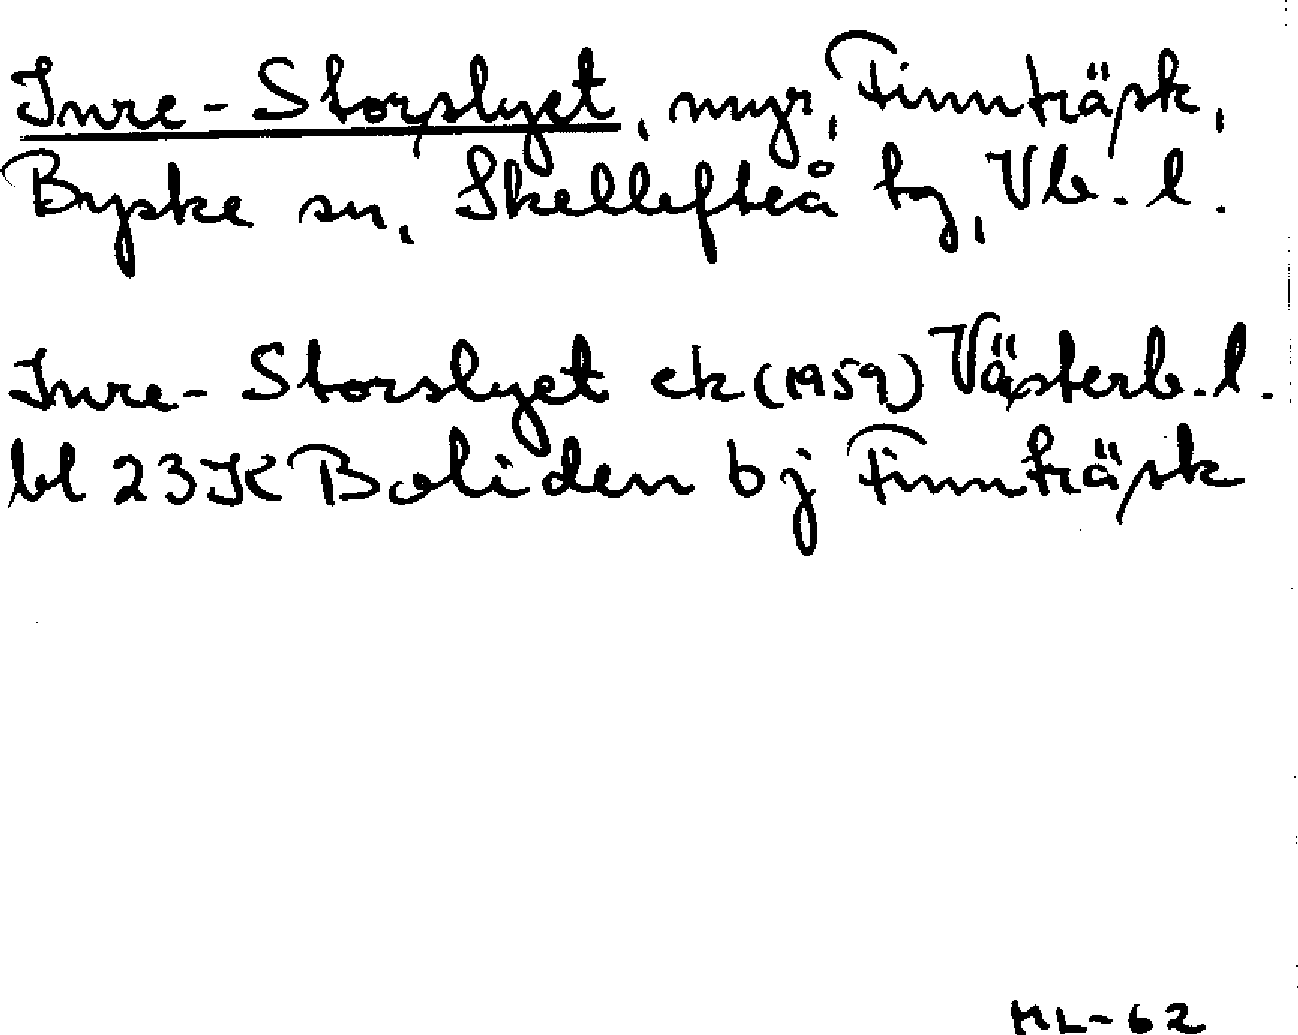 Inre-Storslyet, myr, Finnträsk,
Byske sn, Skellefteå tg, Vb. l.
Inre-Storslyet ek (1959) Västerb. l.
bl 23K Boliden bj Finnträsk
ML-62